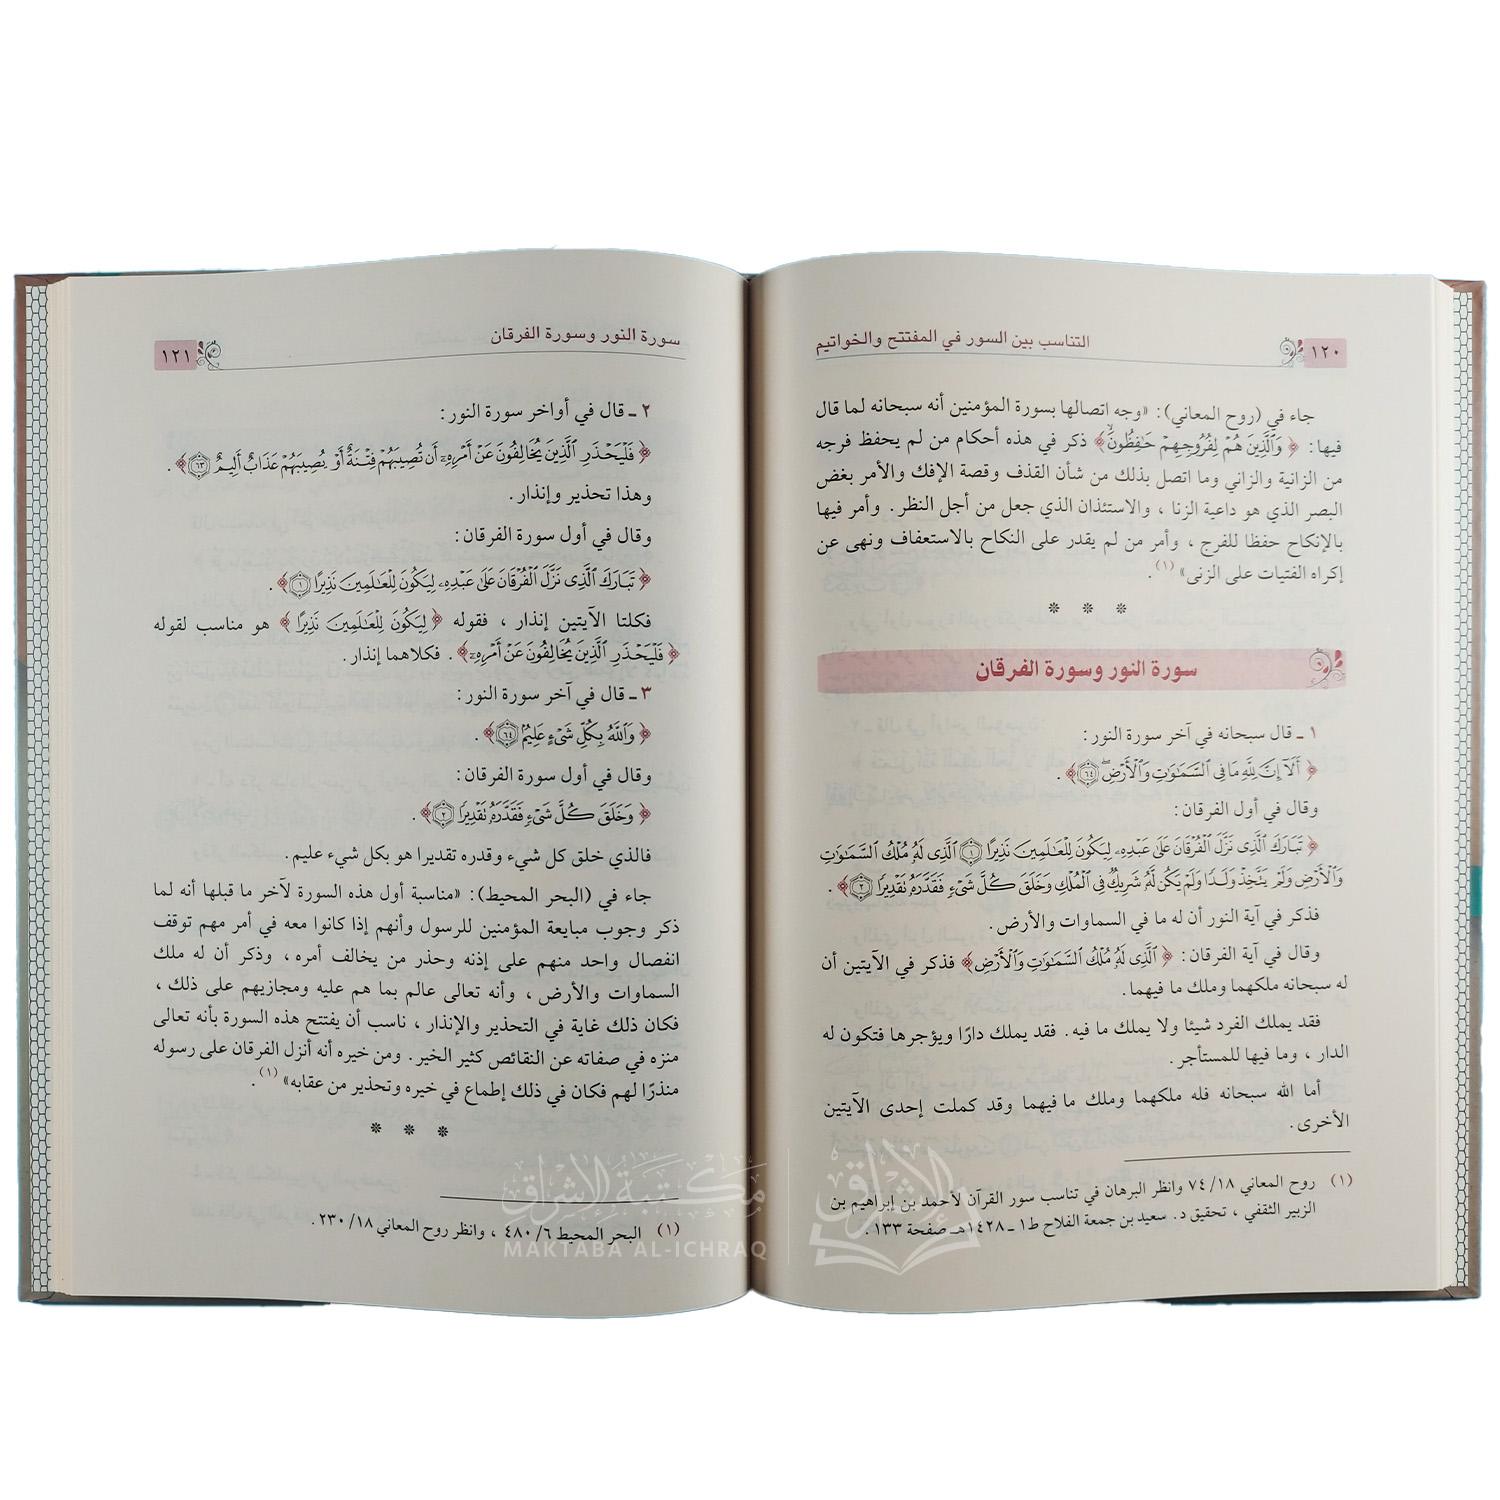 ١٢٠ التناسب بين السور في المفتتح والخواتيم
جاء في (روح المعاني): «وجه اتصالها بسورة المؤمنين أنه سبحانه لما قال
فيها: ﴿ وَٱلَّذِينَ هُمۡ لِفُرُوجِهِمۡ حَٰفِظُونَ ﴾ ذكر في هذه أحكام من لم يحفظ فرجه
من الزانية والزاني وما اتصل بذلك من شأن القذف وقصة الإفك والأمر بغض
البصر الذي هو داعية الزنا ، والاستئذان الذي جعل من أجل النظر. وأمر فيها
بالإنكاح حفظا للفرج ، وأمر من لم يقدر على النكاح بالاستعفاف ونهى عن
إكراه الفتيات على الزنى» (١).
* * *
سورة النور وسورة الفرقان
١ ـ قال سبحانه في آخر سورة النور:
﴿ أَلَآ إِنَّ لِلَّهِ مَا فِي ٱلسَّمَٰوَٰتِ وَٱلۡأَرۡضِۖ ٦٤ ﴾ .
وقال في أول الفرقان:
﴿ تَبَارَكَ ٱلَّذِي نَزَّلَ ٱلۡفُرۡقَانَ عَلَىٰ عَبۡدِهِۦ لِيَكُونَ لِلۡعَٰلَمِينَ نَذِيرًا ١ ٱلَّذِي لَهُۥ مُلۡكُ ٱلسَّمَٰوَٰتِ
وَٱلۡأَرۡضِ وَلَمۡ يَتَّخِذۡ وَلَدٗا وَلَمۡ يَكُن لَّهُۥ شَرِيكٞ فِي ٱلۡمُلۡكِ وَخَلَقَ كُلَّ شَيۡءٖ فَقَدَّرَهُۥ تَقۡدِيرٗا ٢ ﴾ .
فذكر في آية النور أن له ما في السماوات والأرض.
وقال في آية الفرقان: ﴿ ٱلَّذِي لَهُۥ مُلۡكُ ٱلسَّمَٰوَٰتِ وَٱلۡأَرۡضِ ﴾ فذكر في الآيتين أن
له سبحانه ملكهما وملك ما فيهما.
فقد يملك الفرد شيئا ولا يملك ما فيه. فقد يملك دارًا ويؤجرها فتكون له
الدار ، وما فيها للمستأجر.
أما الله سبحانه فله ملكهما وملك ما فيهما وقد كملت إحدى الآيتين
الأخرى.
(١) روح المعاني ١٨/ ٧٤ وانظر البرهان في تناسب سور القرآن لأحمد بن إبراهيم بن
الزبير الثقفي ، تحقيق د. سعيد بن جمعة الفلاح ط١ ـ ١٤٢٨هـ صفحة ١٣٣ .
سورة النور وسورة الفرقان ١٢١
٢ ـ قال في أواخر سورة النور:
﴿ فَلۡيَحۡذَرِ ٱلَّذِينَ يُخَالِفُونَ عَنۡ أَمۡرِهِۦٓ أَن تُصِيبَهُمۡ فِتۡنَةٌ أَوۡ يُصِيبَهُمۡ عَذَابٌ أَلِيمٌ ٦٣ ﴾ .
وهذا تحذير وإنذار.
وقال في أول سورة الفرقان:
﴿ تَبَارَكَ ٱلَّذِي نَزَّلَ ٱلۡفُرۡقَانَ عَلَىٰ عَبۡدِهِۦ لِيَكُونَ لِلۡعَٰلَمِينَ نَذِيرًا ١ ﴾ .
فكلتا الآيتين إنذار ، فقوله ﴿ لِيَكُونَ لِلۡعَٰلَمِينَ نَذِيرًا ﴾ هو مناسب لقوله
﴿ فَلۡيَحۡذَرِ ٱلَّذِينَ يُخَالِفُونَ عَنۡ أَمۡرِهِۦٓ ﴾ . فكلاهما إنذار.
٣ ـ قال في آخر سورة النور:
﴿ وَٱللَّهُ بِكُلِّ شَيۡءٍ عَلِيمُۢ ٦٤ ﴾ .
وقال في أول سورة الفرقان:
﴿ وَخَلَقَ كُلَّ شَيۡءٖ فَقَدَّرَهُۥ تَقۡدِيرٗا ٢ ﴾ .
فالذي خلق كل شيء وقدره تقديرا هو بكل شيء عليم.
جاء في (البحر المحيط): «مناسبة أول هذه السورة لآخر ما قبلها أنه لما
ذكر وجوب مبايعة المؤمنين للرسول وأنهم إذا كانوا معه في أمر مهم توقف
انفصال واحد منهم على إذنه وحذر من يخالف أمره ، وذكر أن له ملك
السماوات والأرض ، وأنه تعالى عالم بما هم عليه ومجازيهم على ذلك ،
فكان ذلك غاية في التحذير والإنذار ، ناسب أن يفتتح هذه السورة بأنه تعالى
منزه في صفاته عن النقائص كثير الخير. ومن خيره أنه أنزل الفرقان على رسوله
منذرًا لهم فكان في ذلك إطماع في خيره وتحذير من عقابه» (١).
* * *
(١) البحر المحيط ٦/ ٤٨٠ ، وانظر روح المعاني ١٨/ ٢٣٠ .
الإشراق
مكتبة الإشراق
MAKTABA AL-ICHRAQ